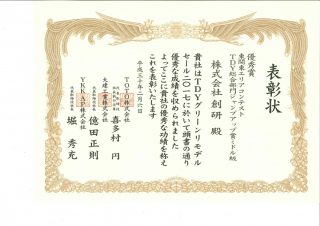 表彰状
優秀賞
東関東エリアコンテスト
TDY総合部門ジャンプアップ賞ミドル級
株式会社 創研 殿
貴社はTDYグリーンリモデル
セール二〇一七に於いて頭書の通り
優秀な成績を収められました
よってここに貴社の優秀な功績を称え
これを表彰いたします
平成三十年二月六日
TOTO株式会社
喜多村 円
大建工業株式会社
億田 正則
YKK AP株式会社
堀 秀充